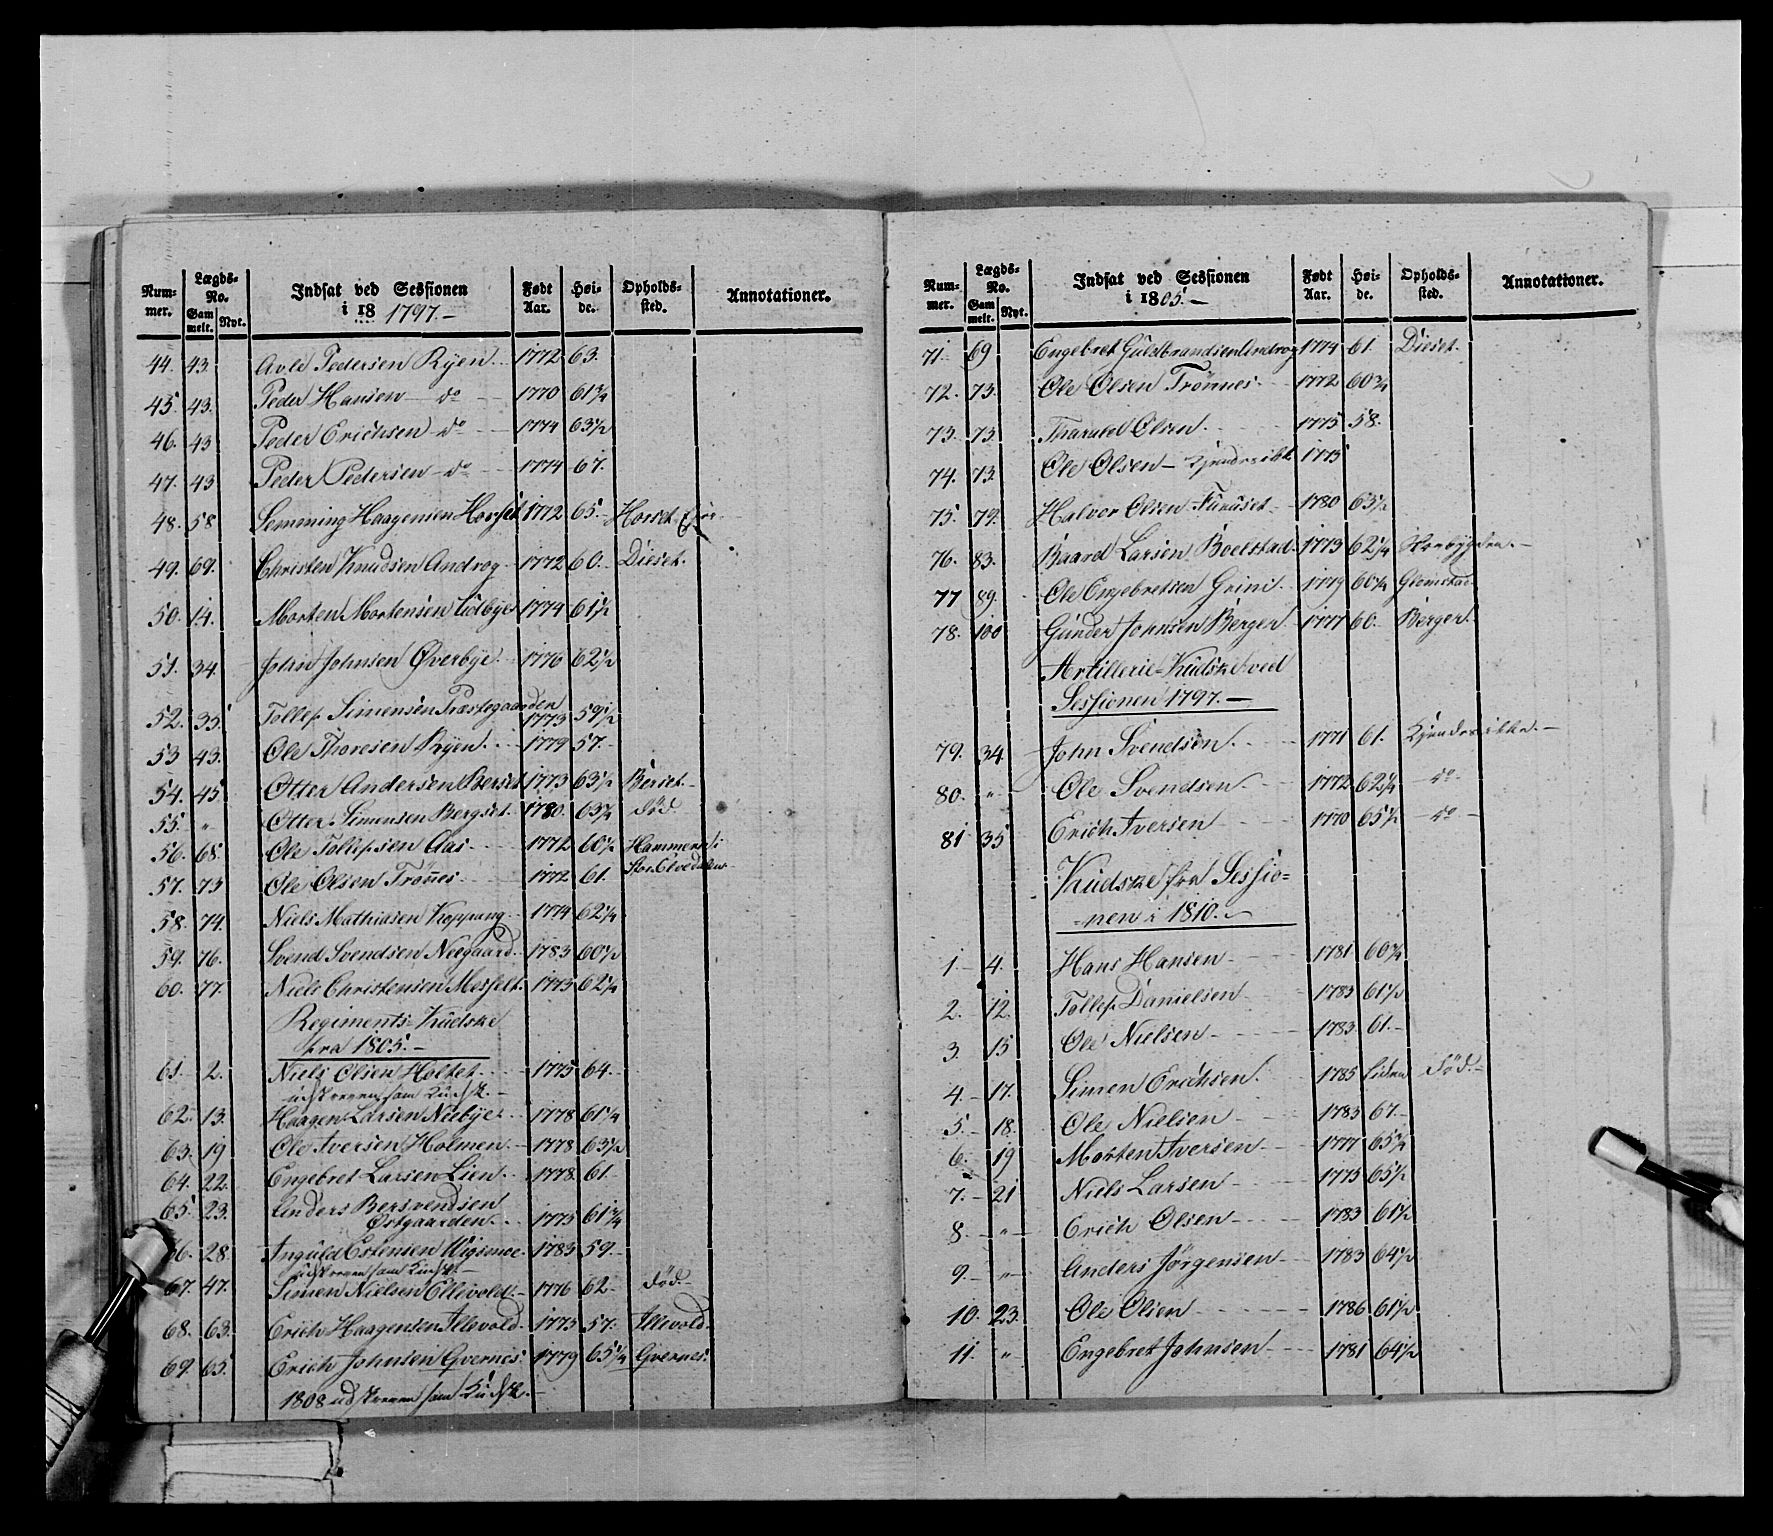 Num-
mer.
Lægds-
No.
Gam
melt.
Nyt.
Indsat ved Sessionen
i 18 1797.-
Født
Aar.
Høi-
de.
Opholds-
sted.
Annotationer.
44. 43. Avle Pedersen Ryen. 1772 63.
45. 43. Peder Hansen - do 1770 61 3/4
46. 43 Peder Erichsen - do 1774 63 1/2
47. 43 Peder Pedersen - do 1774 67.
48. 58 Semming Haagensen Horset 1772 65. Horset
49. 69. Christen Knudsen Androg 1772 60. Dieset.
50. 14. Morten Mortensen Uldbye 1774 61 1/2
51. 34. John Johnsen Øverbye. 1776 62 1/2
52. 35. Tollef Simensen Præstegaarden
1773 59 1/2
53 43. Ole Thoresen Ryen. 1779 57.
54. 45 Otter Andersen Berset 1773 63 1/2 Berset.
55. " Otter Simensen Bergset. 1780. 63 3/4 død
56. 68. Ole Tollefsen Aas 1772 60 1/2 Hammeren i
57. 73 Ole Olsen Trønes. 1772 61. Stor Elvedalen
58. 74. Niels Mathiasen Koppang. 1774 62 1/4
59. 76. Svend Svendsen Neegaard. 1783 60 1/2
60. 77. Niels Christensen Messelt. 1773 62 1/4
Regiments-Kudske
fra 1805.-
61. 2. Niels Olsen Holtet. 1775 64.
udskreven som Kudsk.-
62. 13. Haagen Larsen Neebye. 1778 61 1/4
63. 19 Ole Iversen Holmen. 1778 63 1/2
64. 22. Engebret Larsen Lien. 1778 61.
65. 23. Anders Bersvendsen
Østgaarden. 1775 61 3/4
66. 28. Inguld Estensen Wigsmoe. 1783 59.
udskreven som Kudsk.-
67. 47. Simen Nielsen Ellevold. 1776 62 død.-
68. 63. Erich Haagensen Illevold. 1773 57. Illevold.
69. 65. Erich Johnsen Gvernes. 1779 65 1/4 Gvernes.
1808 udskreven som Kudsk.-
Num-
mer.
Lægds-
No.
Gam
melt.
Nyt.
Indsat ved Sessionen
i 1805.-
Født
Aar.
Høi-
de.
Opholds-
sted.
Annotationer.
71. 69 Engebret Guldbrandsen Androg 1774 61. Dieset.
72. 73. Ole Olsen Trønnes. 1772 60 3/4
73. 73 Olsen. 1775 58.
74. 73. Ole Olsen - Kjendes ikke 1775
75. 79. Halvor Olsen Furuset 1780 63 1/2
76. 83. Baard Larsen Boelstad. 1773 62 1/4
77 89. Ole Engebretsen Grini. 1779 60 1/4 Glomstad.
78. 100 Gunder Johnsen Berger. 1777 60. Berger.
Artillerie-Kudske ved
Sessionen 1797.-
79. 34. John Svendsen. 1771 61. Kjendes ikke.-
80. " Ole Svendsen. 1772 62 1/4 - do -
81 35 Erich Iversen 1770 65 1/2 - do -
Kudske fra Sessio-
nen i 1810.
1. 4. Hans Hansen 1781 60 3/4
2. 12. Tollef Danielsen 1783 61 1/2
3. 15 Ole Nielsen 1783. 61.
4. 17. Simen Erichsen. 1785 liden død.-
5. 18. Ole Nielsen 1783 67.
6. 19 Morten Iversen 1777 65 3/4
7. 21 Niels Larsen 1775 65 1/2
8. " Erich Olsen 1783 61 1/2
9. " Anders Jörgensen 1783 64 1/2
10. 23. Ole Olsen 1786 61 1/2
11. " Engebret Johnsen 1781 64 1/2